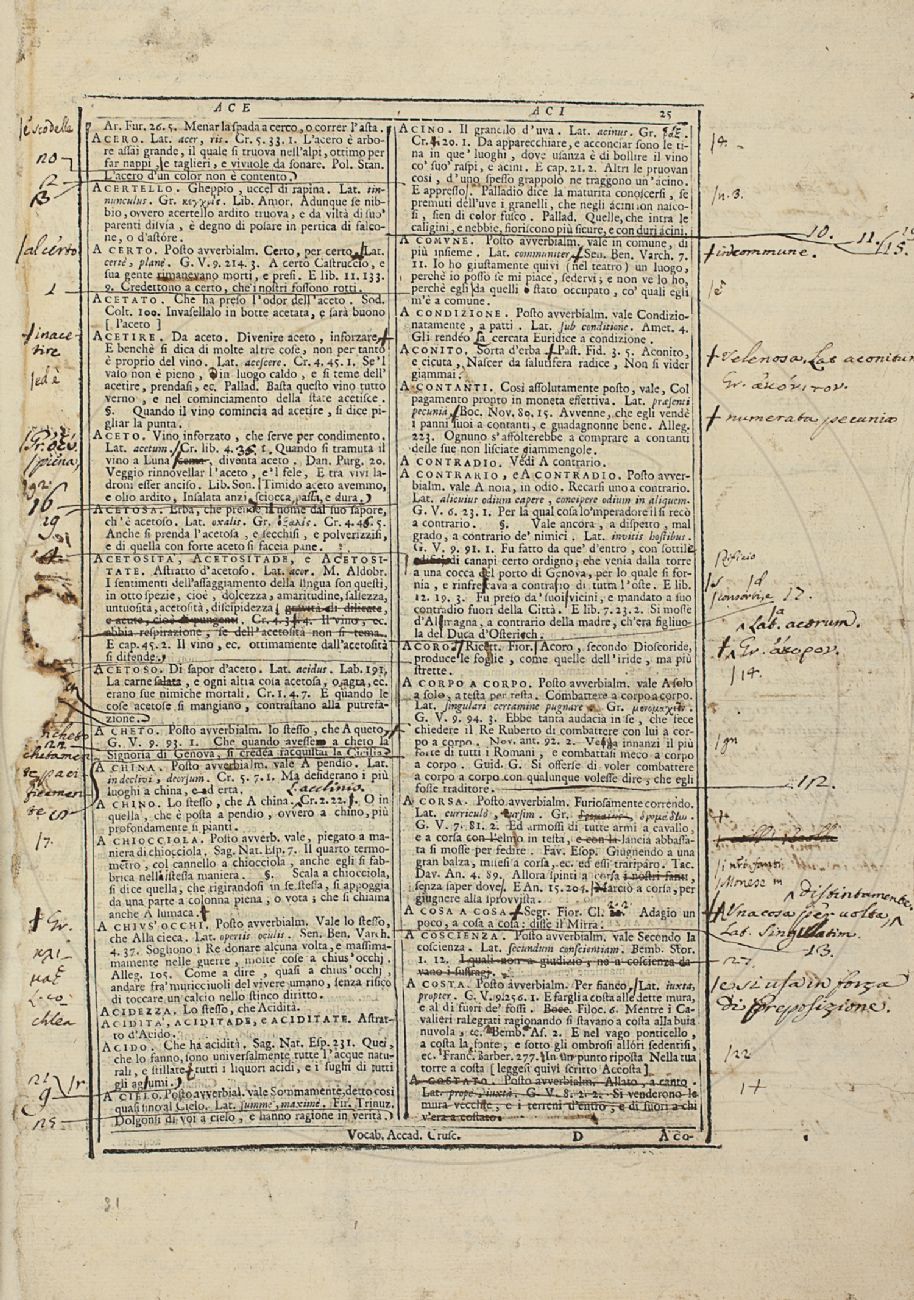 ACE
ACI 25
Ar. Fur. 26. 5. Menar la spada a cerco, o correr l'asta.
ACERO. Lat. acer, ris. Cr. 5. 33. 1. L'acero è arbo-
re assai grande, il quale si truova nell'alpi, ottimo per
far nappi, e taglieri, e vivuole da sonare. Pol. Stan.
L'acero d'un color non è contento.
ACERTELLO. Gheppio, uccel di rapina. Lat. tin-
nunculus. Gr. κεγχρίς. Lib. Amor. Adunque se nib-
bio, ovvero acertello ardito truova, e da viltà di suo'
parenti disvia, è degno di posare in pertica di falco-
ne, o d'astóre.
A CERTO. Posto avverbialm. Certo, per certo. Lat.
certè, planè. G. V. 9. 214. 3. A certo Castruccio, e
sua gente rimanevano morti, e presi. E lib. 11. 133.
9. Credettono a certo, che i nostri fossono rotti.
ACETATO. Che ha preso l'odor dell'aceto. Sod.
Colt. 100. Invasellalo in botte acetata, e sarà buono
[l'aceto]
ACETIRE. Da aceto. Divenire aceto, inforzare,
E benchè si dica di molte altre cose, non per tanto
è proprio del vino. Lat. acescere. Cr. 4. 45. 1. Se'l
vaso non è pieno, in luogo caldo, e si teme dell'
acetire, prendasi, ec. Pallad. Basta questo vino tutto
verno, e nel cominciamento della state acetisce.
§. Quando il vino comincia ad acetire, si dice pi-
gliar la punta.
ACETO. Vino inforzato, che serve per condimento.
Lat. acetum. Cr. lib. 4. Quando si tramuta il
vino a Luna, diventa aceto. Dan. Purg. 20.
Veggio rinnovellar l'aceto, e'l fele, E tra vivi la-
droni esser anciso. Lib. Son. Timido aceto avemmo,
e olio ardito, Insalata anzi sciocca, passa, e dura.
ACETOSA. Erba, che prende il nome dal suo sapore,
ch'è acetoso. Lat. oxalis. Gr. ὀξαλίς. Cr. 4. 46. 5.
Anche si prenda l'acetosa, e secchisi, e polverizzisi,
e di quella con forte aceto si faccia pane.
ACETOSITÀ, ACETOSITADE, e ACETOSI-
TATE. Astratto d'acetoso. Lat. acor. M. Aldobr.
I sentimenti dell'assaggiamento della lingua son questi,
in otto spezie, cioè, dolcezza, amaritudine, salsezza,
untuosità, acetosità, diseipidezza, gravità di dilicate,
e acute, cioè di pungenti. Cr. 4. 3. 4. Il vino, ec.
abbia respirazione, se dell'acetosità non si tema.
E cap. 45. 2. Il vino, ec. ottimamente dall'acetosità
si difende.
ACETOSO. Di sapor d'aceto. Lat. acidus. Lab. 191.
La carne salata, e ogni altra cosa acetosa, o agra, ec.
erano sue nimiche mortali. Cr. 1. 4. 7. E quando le
cose acetose si mangiano, contrastano alla putrefa-
zione.
A CHETO. Posto avverbialm. lo stesso, che A queto.
G. V. 9. 93. 1. Che quando avessem a cheto la
Signoria di Genova, si credea racquistar la Cicilia.
A CHINA. Posto avverbialm. vale A pendio. Lat.
in declivi, deorsum. Cr. 5. 7. 1. Ma desiderano i più
luoghi a china, e ad erta. L. acclinio.
A CHINO. Lo stesso, che A china. Cr. 2. 22. O in
quella, che è posta a pendio, ovvero a chino, più
profondamente si pianti.
A CHIOCCIOLA. Posto avverb. vale, piegato a ma-
niera di chiocciola. Sag. Nat. Esp. 7. Il quarto termo-
metro, col cannello a chiocciola, anche egli si fab-
brica nella stessa maniera. §. Scala a chiocciola,
si dice quella, che rigirandosi in se stessa, si appoggia
da una parte a colonna piena, o vota; che si chiama
anche A lumaca.
A CHIUS' OCCHI. Posto avverbialm. Vale lo stesso,
che Alla cieca. Lat. opertis oculis. Sen. Ben. Varch.
4. 37. Sogliono i Re donare alcuna volta, e massima-
mente nelle guerre, molte cose a chius'occhj.
Alleg. 105. Come a dire, quasi a chius'occhj,
andare fra' muricciuoli del vivere umano, senza risico
di toccare un calcio nello stinco diritto.
ACIDEZZA. Lo stesso, che Acidità.
ACIDITÀ, ACIDITADE, e ACIDITATE. Astrat-
to d'Acido.
ACIDO. Che ha acidità. Sag. Nat. Esp. 231. Quei,
che lo fanno, sono universalmente tutte l'acque natu-
rali, e stillate, tutti i liquori acidi, e i sughi di tutti
gli agrumi.
A CIELO. Posto avverbial. vale Sommamente, detto così
quasi fino al Cielo. Lat. summè, maximè. Fir. Trinuz.
Dolgonsi di voi a cielo, e hanno ragione in verità.
ACINO. Il granello d'uva. Lat. acinus. Gr.
Cr. 4. 20. 1. Da apparecchiare, e acconciar sono le ti-
na in que' luoghi, dove usanza è di bollire il vino
co' suo' raspi, e acini. E cap. 21. 2. Altri le pruovan
così, d'uno spesso grappolo ne traggono un'acino.
E appresso. Palladio dice la maturità conoscersi, se
premuti dell'uve i granelli, che negli acini son nasco-
si, sien di color fusco. Pallad. Quelle, che intra le
caligini, e nebbie, fioriscono più sicure, e con duri acini.
A COMUNE. Posto avverbialm. vale in comune, di
più insieme. Lat. communiter. Sen. Ben. Varch. 7.
11. Io ho giustamente quivi (nel teatro) un luogo,
perchè io posso se mi piace, sedervi; e non ve lo ho,
perchè egli da quelli è stato occupato, co' quali egli
m'è a comune.
A CONDIZIONE. Posto avverbialm. vale Condizio-
natamente, a patti. Lat. sub conditione. Amet. 4.
Gli rendéo la cercata Euridice a condizione.
ACONITO. Sorta d'erba. Past. Fid. 3. 5. Aconito,
e cicuta, Nascer da salutifera radice, Non si vider
giammai.
A CONTANTI. Così assolutamente posto, vale, Col
pagamento propto in moneta effettiva. Lat. præsenti
pecunia. Boc. Nov. 80. 15. Avvenne, che egli vendè
i panni suoi a contanti, e guadagnonne bene. Alleg.
223. Ognuno s'affolterebbe a comprare a contanti
delle sue non lisciate giammengole.
A CONTRADIO. Vedi A contrario.
A CONTRARIO, e A CONTRADIO. Posto avver-
bialm. vale A noia, in odio. Recarsi uno a contrario.
Lat. alicuius odium capere, concipere odium in aliquem.
G. V. 6. 23. 1. Per la qual cosa lo'mperadore il si recò
a contrario. §. Vale ancora, a dispetto, mal
grado, a contrario de' nimici. Lat. invitis hostibus.
G. V. 9. 91. 1. Fu fatto da que' d'entro, con sottile
di canapi certo ordigno; che venia dalla torre
a una cocca del porto di Genova, per lo quale si for-
nia, e rinfrescava a contrasto di tutta l'oste. E lib.
12. 19. 3. Fu preso da' suoi vicini, e mandato a suo
contradio fuori della Città. E lib. 7. 23. 2. Si mosse
d'Alamagna, a contrario della madre, ch'era figliuo-
la del Duca d'Osterich.
ACORO. Ricett. Fior. Acoro, secondo Dioscoride,
produce le foglie, come quelle dell'iride, ma più
strette.
A CORPO A CORPO. Posto avverbialm. vale A solo
a solo, a testa per testa. Combattere a corpo a corpo.
Lat. singulari certamine pugnare. Gr. μονομαχεῖν.
G. V. 9. 94. 3. Ebbe tanta audacia in se, che fece
chiedere il Re Ruberto di combattere con lui a cor-
po a corpo. Nov. ant. 92. 2. Vegna innanzi il più
forte di tutti i Romani, e combattasi meco a corpo
a corpo. Guid. G. Si offerse di voler combattere
a corpo a corpo con qualunque volesse dire, che egli
fosse traditore.
A CORSA. Posto avverbialm. Furiosamente correndo.
Lat. curriculò, cursim. Gr.
G. V. 7. 81. 2. Ed armossi di tutte armi a cavallo,
e a corsa con l'elmo in testa, e con la lancia abbassa-
ta si mosse per fedire. Fav. Esop. Giugnendo a una
gran balza, misesi a corsa, ec. ed essi traripàro. Tac.
Dav. An. 4. 89. Allora spinti a corsa i nostri fanti,
senza saper dove. E An. 15. 204. Marciò a corsa, per
giugnere alla sprovvista.
A COSA A COSA. Segr. Fior. Cl. 2. 2. Adagio un
poco, a cosa a cosa: disse il Mirra.
A COSCIENZA. Posto avverbialm. vale Secondo la
coscienza. Lat. secundum conscientiam. Bemb. Stor.
1. 12. I quali non a giudizio, nè a coscienza da-
vano i suffragj.
A COSTA. Posto avverbialm. Per fianco. Lat. iuxta,
propter. G. V. 9. 256. 1. E fargli a costa alle dette mura,
e al di fuori de' fossi. Bocc. Filoc. 6. Mentre i Ca-
valieri rallegrati ragionando si stavano a costa alla buia
nuvola, ec. Bemb. As. 2. E nel vago ponticello,
a costa la fonte; e sotto gli ombrosi allóri sedentisi,
ec. Franc. Barber. 277. In un punto riposta Nella tua
torre a costa [leggesi quivi scritto Accosta].
A COSTATO. Posto avverbialm. Allato, a canto.
Lat. prope, iuxta. G. V. 8. 2. 2. Si venderono le
mura vecchie, e i terreni d'entro, e di fuori a chi
v'era a costato.
Vocab. Accad. Crusc. D A co-
è scodelle
20
2
al certo
1
+ inace-
tire
ed è
16
29
17.
+ Gr.
L. co-
chlea
9
25
n. 3.
10. 11.
15.
+ in commune.
è
+ Velenosa. Lat. aconitum
Gr. ἀκόνιτον.
+ numerata pecunia
17.
Lat. acorum.
+ Gr. ἄκορον.
14.
gn
112.
distintamente.
+ Una cosa per volta
Lat. Singillatim
13.
27.
e si usa in forza
di preposizione.
22
31